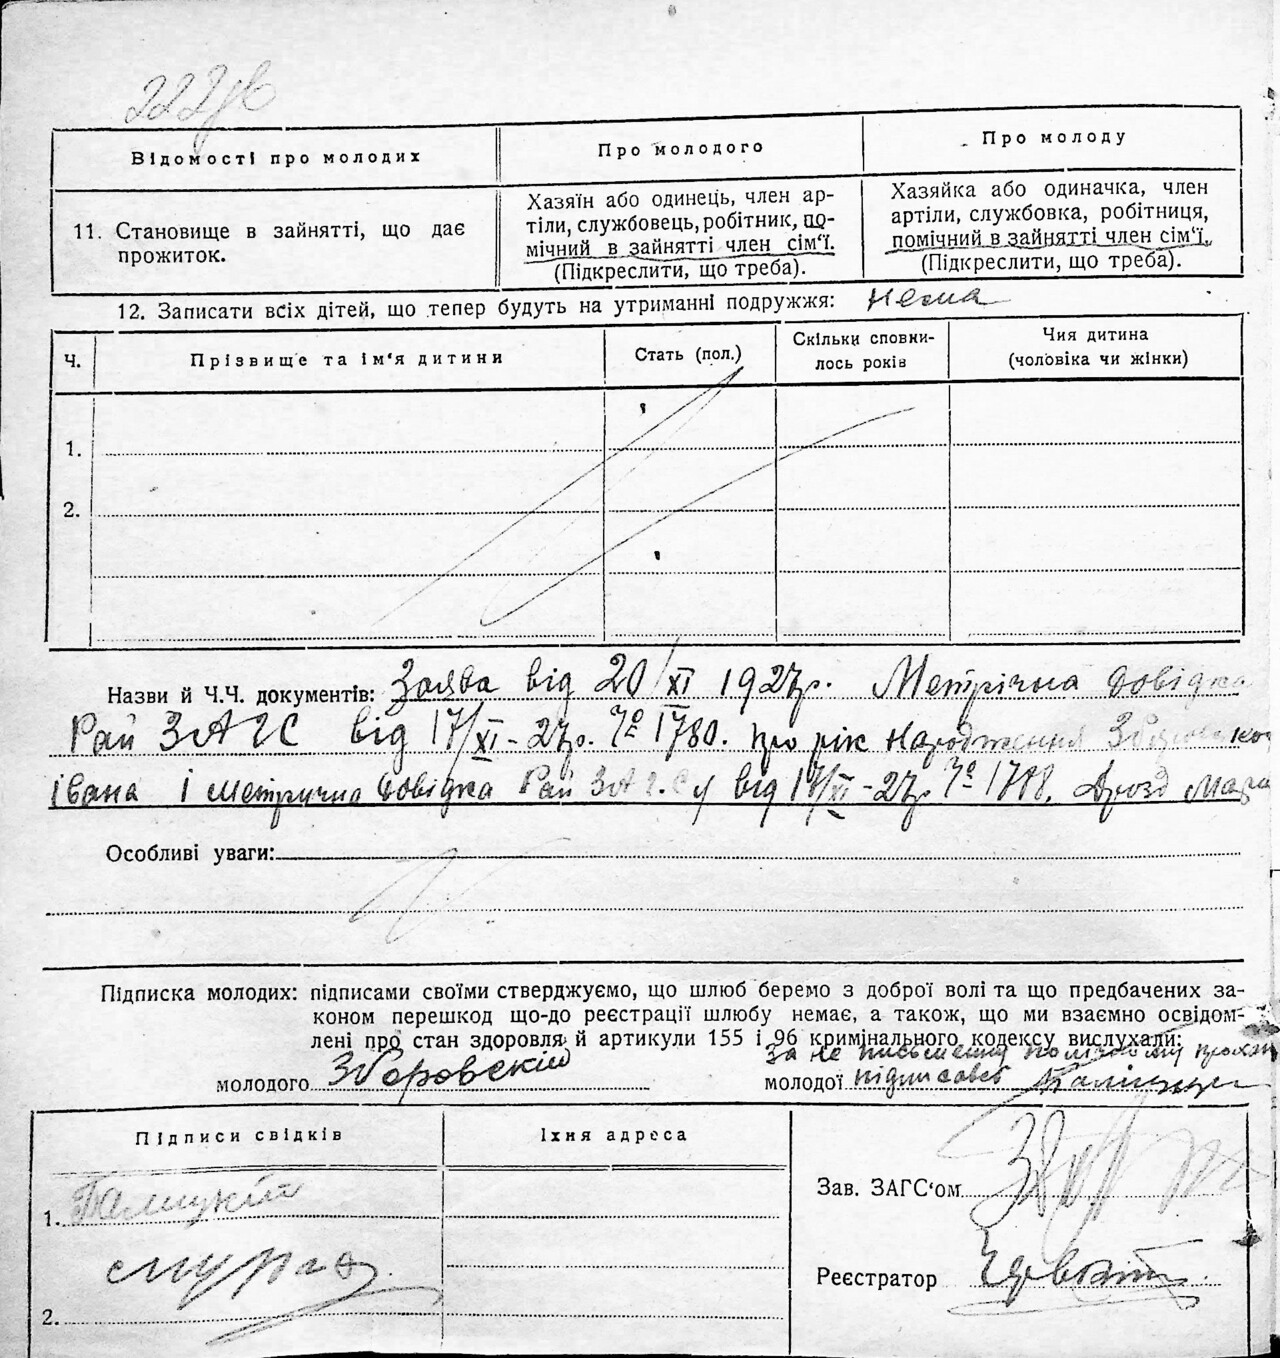 222зв
Відомості про молодих
Про молодого
Про молоду
11. Становище в зайнятті, що дає
прожиток.
Хазяїн або одинець, член ар-
тіли, службовець, робітник, по-
мічний в зайнятті член сім'ї.
(Підкреслити, що треба).
Хазяйка або одиначка, член
артіли, службовка, робітниця,
помічний в зайнятті член сім'ї.
(Підкреслити, що треба).
12. Записати всіх дітей, що тепер будуть на утриманні подружжя: нема
Ч.
Прізвище та ім'я дитини
Стать (пол.)
Скільки сповни-
лось років
Чия дитина
(чоловіка чи жінки)
1.
2.
Назви й Ч.Ч. документів: Заява від 20/XI 1927р. Метрічна довідка
Рай ЗАГС від 17/XI-27р. № 1780. про рік народження Зборовского
Івана і метрична довідка Рай ЗАГСу від 17/XI-27р № 1788. Дрозд Мара
Особливі уваги:
Підписка молодих: підписами своїми стверджуємо, що шлюб беремо з доброї волі та що предбачених за-
коном перешкод що-до реєстрації шлюбу немає, а також, що ми взаємно освідом-
лені про стан здоровля й артикули 155 і 96 кримінального кодексу вислухали:
за не письменну по її прох
молодого Зборовский
молодої підписавсь
Підписи свідків
Їхня адреса
1.
2.
Зав. ЗАГС'ом
Реєстратор